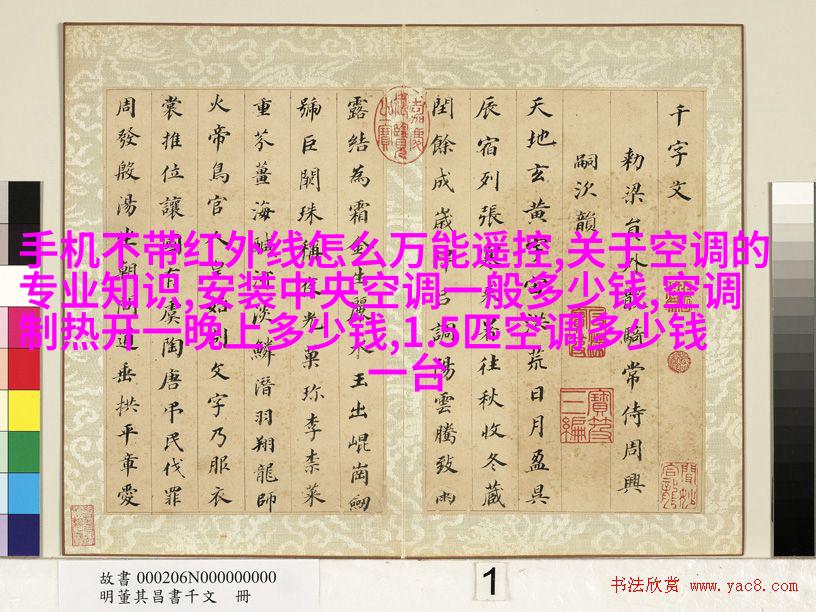 千字文
勅梁員外散騎常侍周興
嗣次韻
天地玄黃宇宙洪荒日月盈昃
辰宿列張寒來暑往秋收冬藏
閏餘成歲律呂調陽雲騰致雨
露結為霜金生麗水玉出崐崗劒
號巨闕珠稱夜光菓珍李柰菜
重芥薑海醎河淡鱗潛羽翔龍師
火帝鳥官人皇始制文字乃服衣
裳推位讓國有虞陶唐弔民伐罪
周發殷湯坐朝問道垂拱平章愛
寶笈
三編
手机不带红外线怎么万能遥控,关于空调的
专业知识,安装中央空调一般多少钱,空调
制热开一晚上多少钱,1.5匹空调多少钱
一台
故書 000206N000000000
明董其昌書千文 冊
1
书法欣赏 www.yac8.com